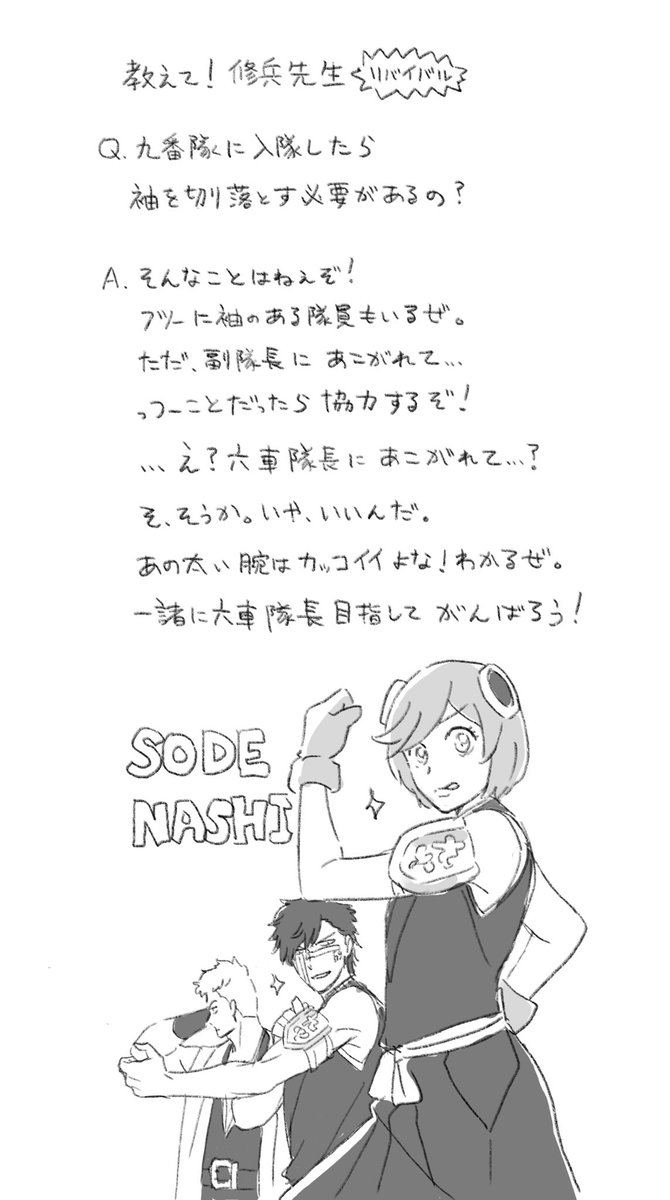 教えて！修兵先生 リバイバル
Q. 九番隊に入隊したら
袖を切り落とす必要があるの？
A. そんなことはねえぞ！
フツーに袖のある隊員もいるぜ。
ただ、副隊長に あこがれて…
っつーことだったら 協力するぞ！
…え？六車隊長に あこがれて…？
そ、そうか。いや、いいんだ。
あの太い腕はカッコイイよな！わかるぜ。
一諸に六車隊長目指して がんばろう！
SODE
NASHI